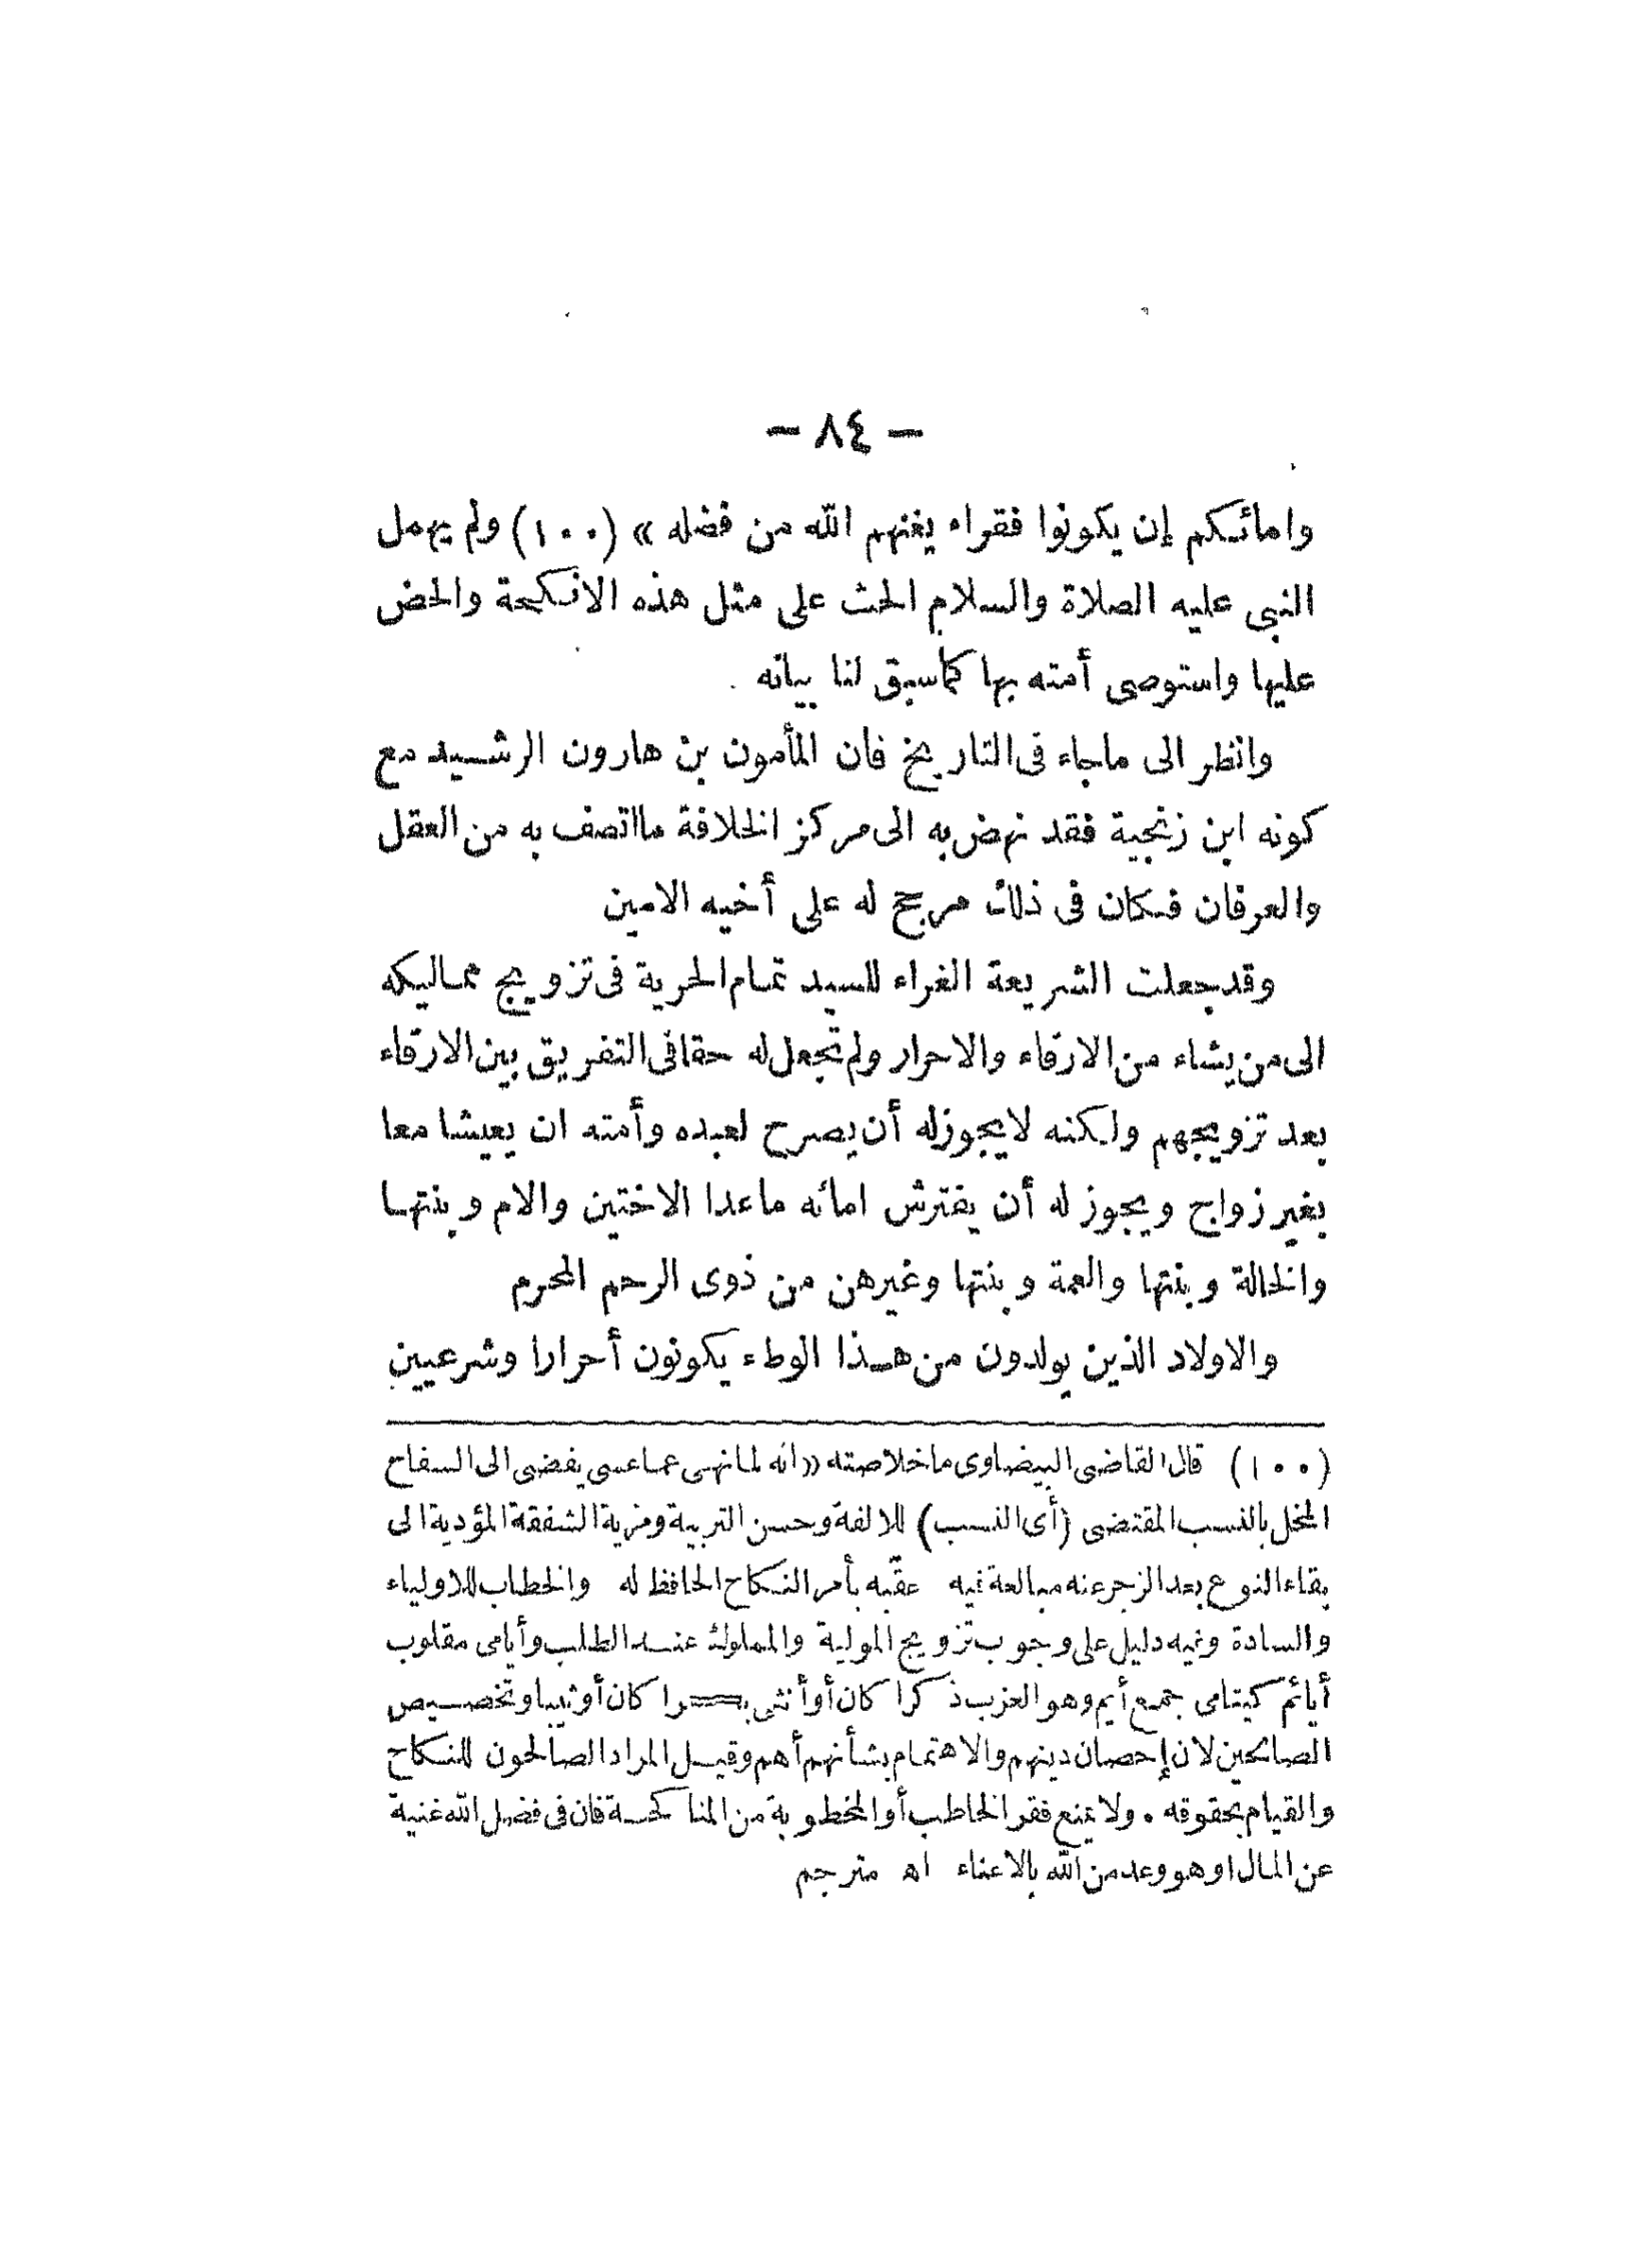 — ٨٤ —
وامائكم إن يكونوا فقراء يغنهم الله من فضله » (١٠٠) ولم يهمل
النبى عليه الصلاة والسلام الحث على مثل هذه الانكحة والحض
عليها واستوصى أمته بها كما سبق لنا بيانه .
وانظر الى ماجاء فى التاريخ فان المأمون بن هارون الرشيد مع
كونه ابن زنجية فقد نهض به الى مركز الخلافة ما اتصف به من العقل
والعرفان فكان فى ذلك مرجح له على أخيه الامين
وقد جعلت الشريعة الغراء للسيد تمام الحرية فى تزويج مماليكه
الى من يشاء من الارقاء والاحرار ولم تجعل له حقا فى التفريق بين الارقاء
بعد تزويجهم ولكنه لا يجوز له أن يصرح لعبده وأمته ان يعيشا معا
بغير زواج ويجوز له أن يفترش امائه ماعدا الاختين والام وبنتها
والخالة وبنتها والعمة وبنتها وغيرهن من ذوى الرحم المحرم
والاولاد الذين يولدون من هذا الوطء يكونون أحرارا وشرعيين
(١٠٠) قال القاضى البيضاوى ماخلاصته «انه لما نهى عما عسى يفضى الى السفاح
المخل بالنسب المقتضى (أى النسب) للالفة وحسن التربية ومزية الشفقة المؤدية الى
بقاء النوع بعد الزجر عنه مبالغة فيه عقبه بأمر النكاح الحافظ له والخطاب للاولياء
والسادة وفيه دليل على وجوب تزويج المولية والمملوك عند الطلب وأيامى مقلوب
أيائم كيتامى جمع أيم وهو العزب ذكرا كان أو أنثى بكرا كان أو ثيبا وتخصيص
الصالحين لان إحصان دينهم والاهتمام بشأنهم أهم وقيل المراد الصالحون للنكاح
والقيام بحقوقه . ولا يمنع فقر الخاطب أو المخطوبة من المناكحة فان فى فضل الله غنية
عن المال او هو وعد من الله بالاغناء اه مترجم